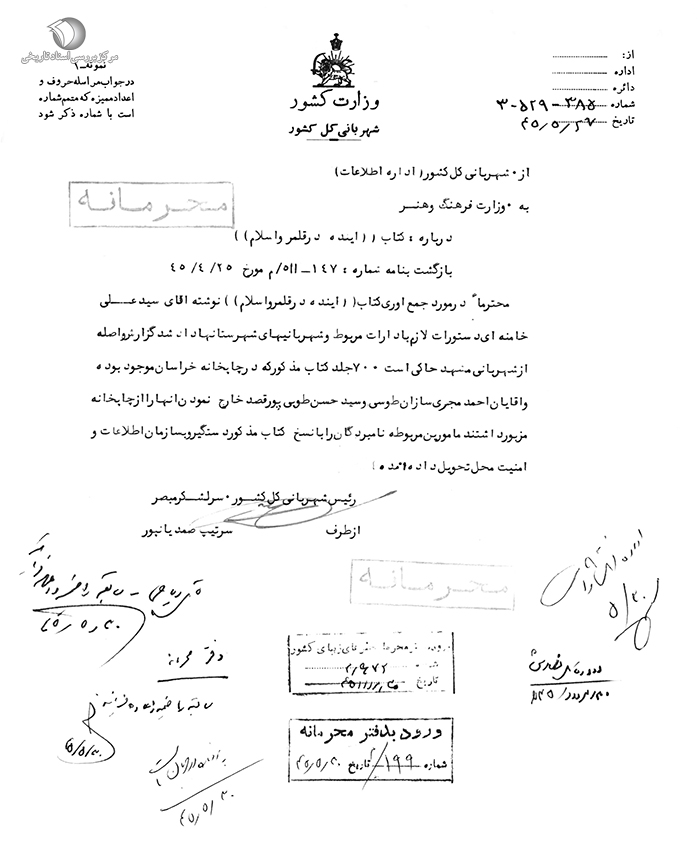 مرکز بررسی اسناد تاریخی
نمونه ـ ۱
در جواب مراسله حروف و
اعداد ممیزه که متمم شماره
است با شماره ذکر شود
وزارت کشور
شهربانی کل کشور
از:
اداره
دائره
شماره ۳۸۵-۵۲۹-۳
تاریخ ۴۵/۵/۲۷
از ، شهربانی کل کشور( اداره اطلاعات)
محرمانه
به ، وزارت فرهنگ و هنر
درباره ، کتاب (( اینده در قلمرو اسلام))
بازگشت بنامه شماره ؛ ۱۴۷-۵۱۱/م مورخ ۴۵/۴/۲۵
محترماً درمورد جمع اوری کتاب(( اینده در قلمرو اسلام)) نوشته اقای سیدعلی
خامنه ای دستورات لازم بادارات مربوط وشهربانیهای شهرستانهاداده شد گزارش واصله
ازشهربانی مشهد حاکی است ۷۰۰ جلد کتاب مذکورکه درچاپخانه خراسان موجود بوده
واقایان احمد مجری سازان طوسی وسید حسن طوبی پورقصد خارج نمودن انهارا ازچاپخانه
مزبورداشتند مامورین مربوطه نامبردگان رابا نسخ کتاب مذکوردستگیروبسازمان اطلاعات و
امنیت محل تحویل داده اند
رئیس شهربانی کل کشور ، سرلشکرمبصر
ازطرف سرتیپ صمدیانپور
محرمانه
اداره
۵/۳۰
۴۵/۵/۳۰
دفتر محرمانه
۴۵/۵/۳۰
۴۵/۵/۳۰
ورود بدفتر محرمانه هنرهای زیبای کشور
شماره
تاریخ
ورود بدفتر محرمانه
شماره ۱۹۹ تاریخ ۴۵/۵/۳۰